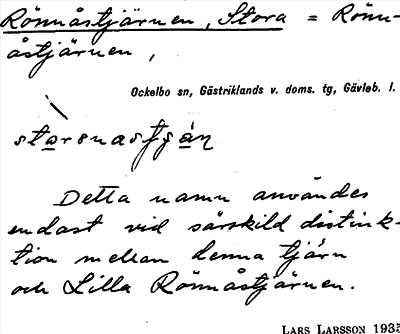 Rönnåstjärnen, Stora = Rönn-
åstjärnen,
Ockelbo sn, Gästriklands v. doms. tg, Gävleb. l.
Detta namn användes
endast vid särskild distink-
tion mellan denna tjärn
och Lilla Rönnåstjärnen.
LARS LARSSON 1935